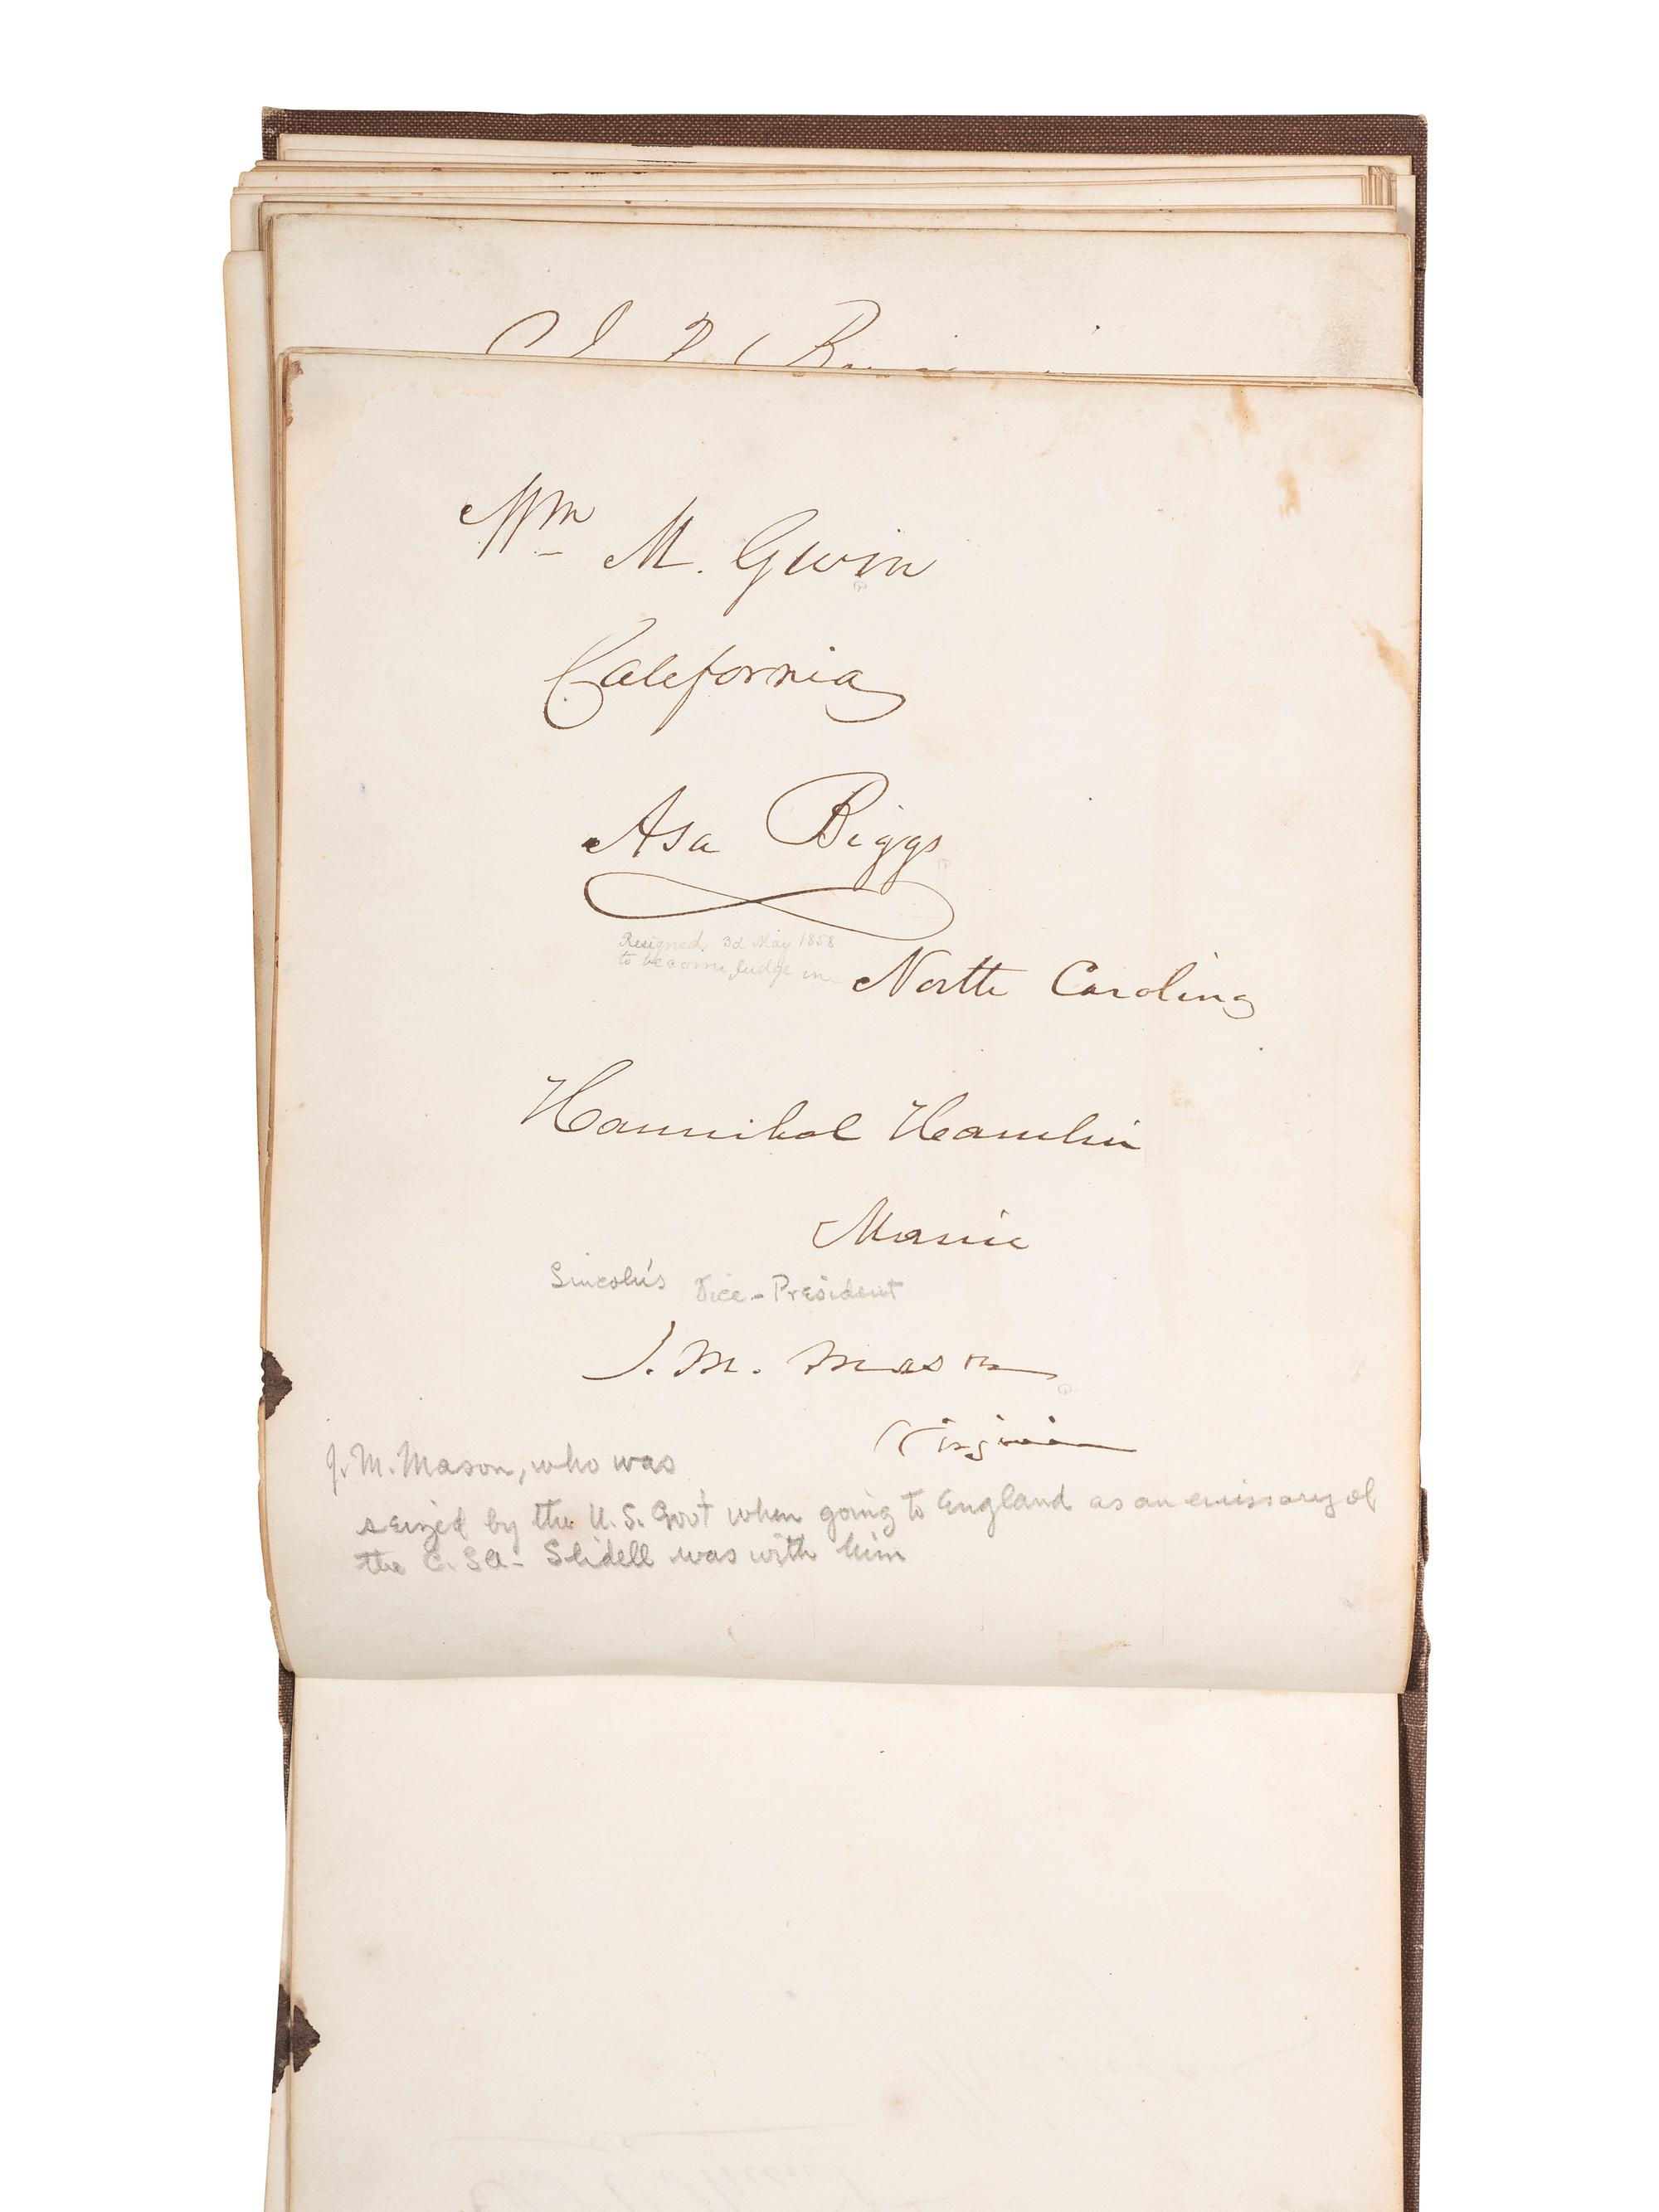 Wm M. Gwin
California
Asa Biggs
Resigned 3d May 1858
to become Judge in North Carolina
Hannibal Hamlin
Maine
Lincoln's Vice-President
J. M. Mason
Virginia
J. M. Mason, who was
seized by the U.S. Govt when going to England as an emissary of
the C. S A - Slidell was with him